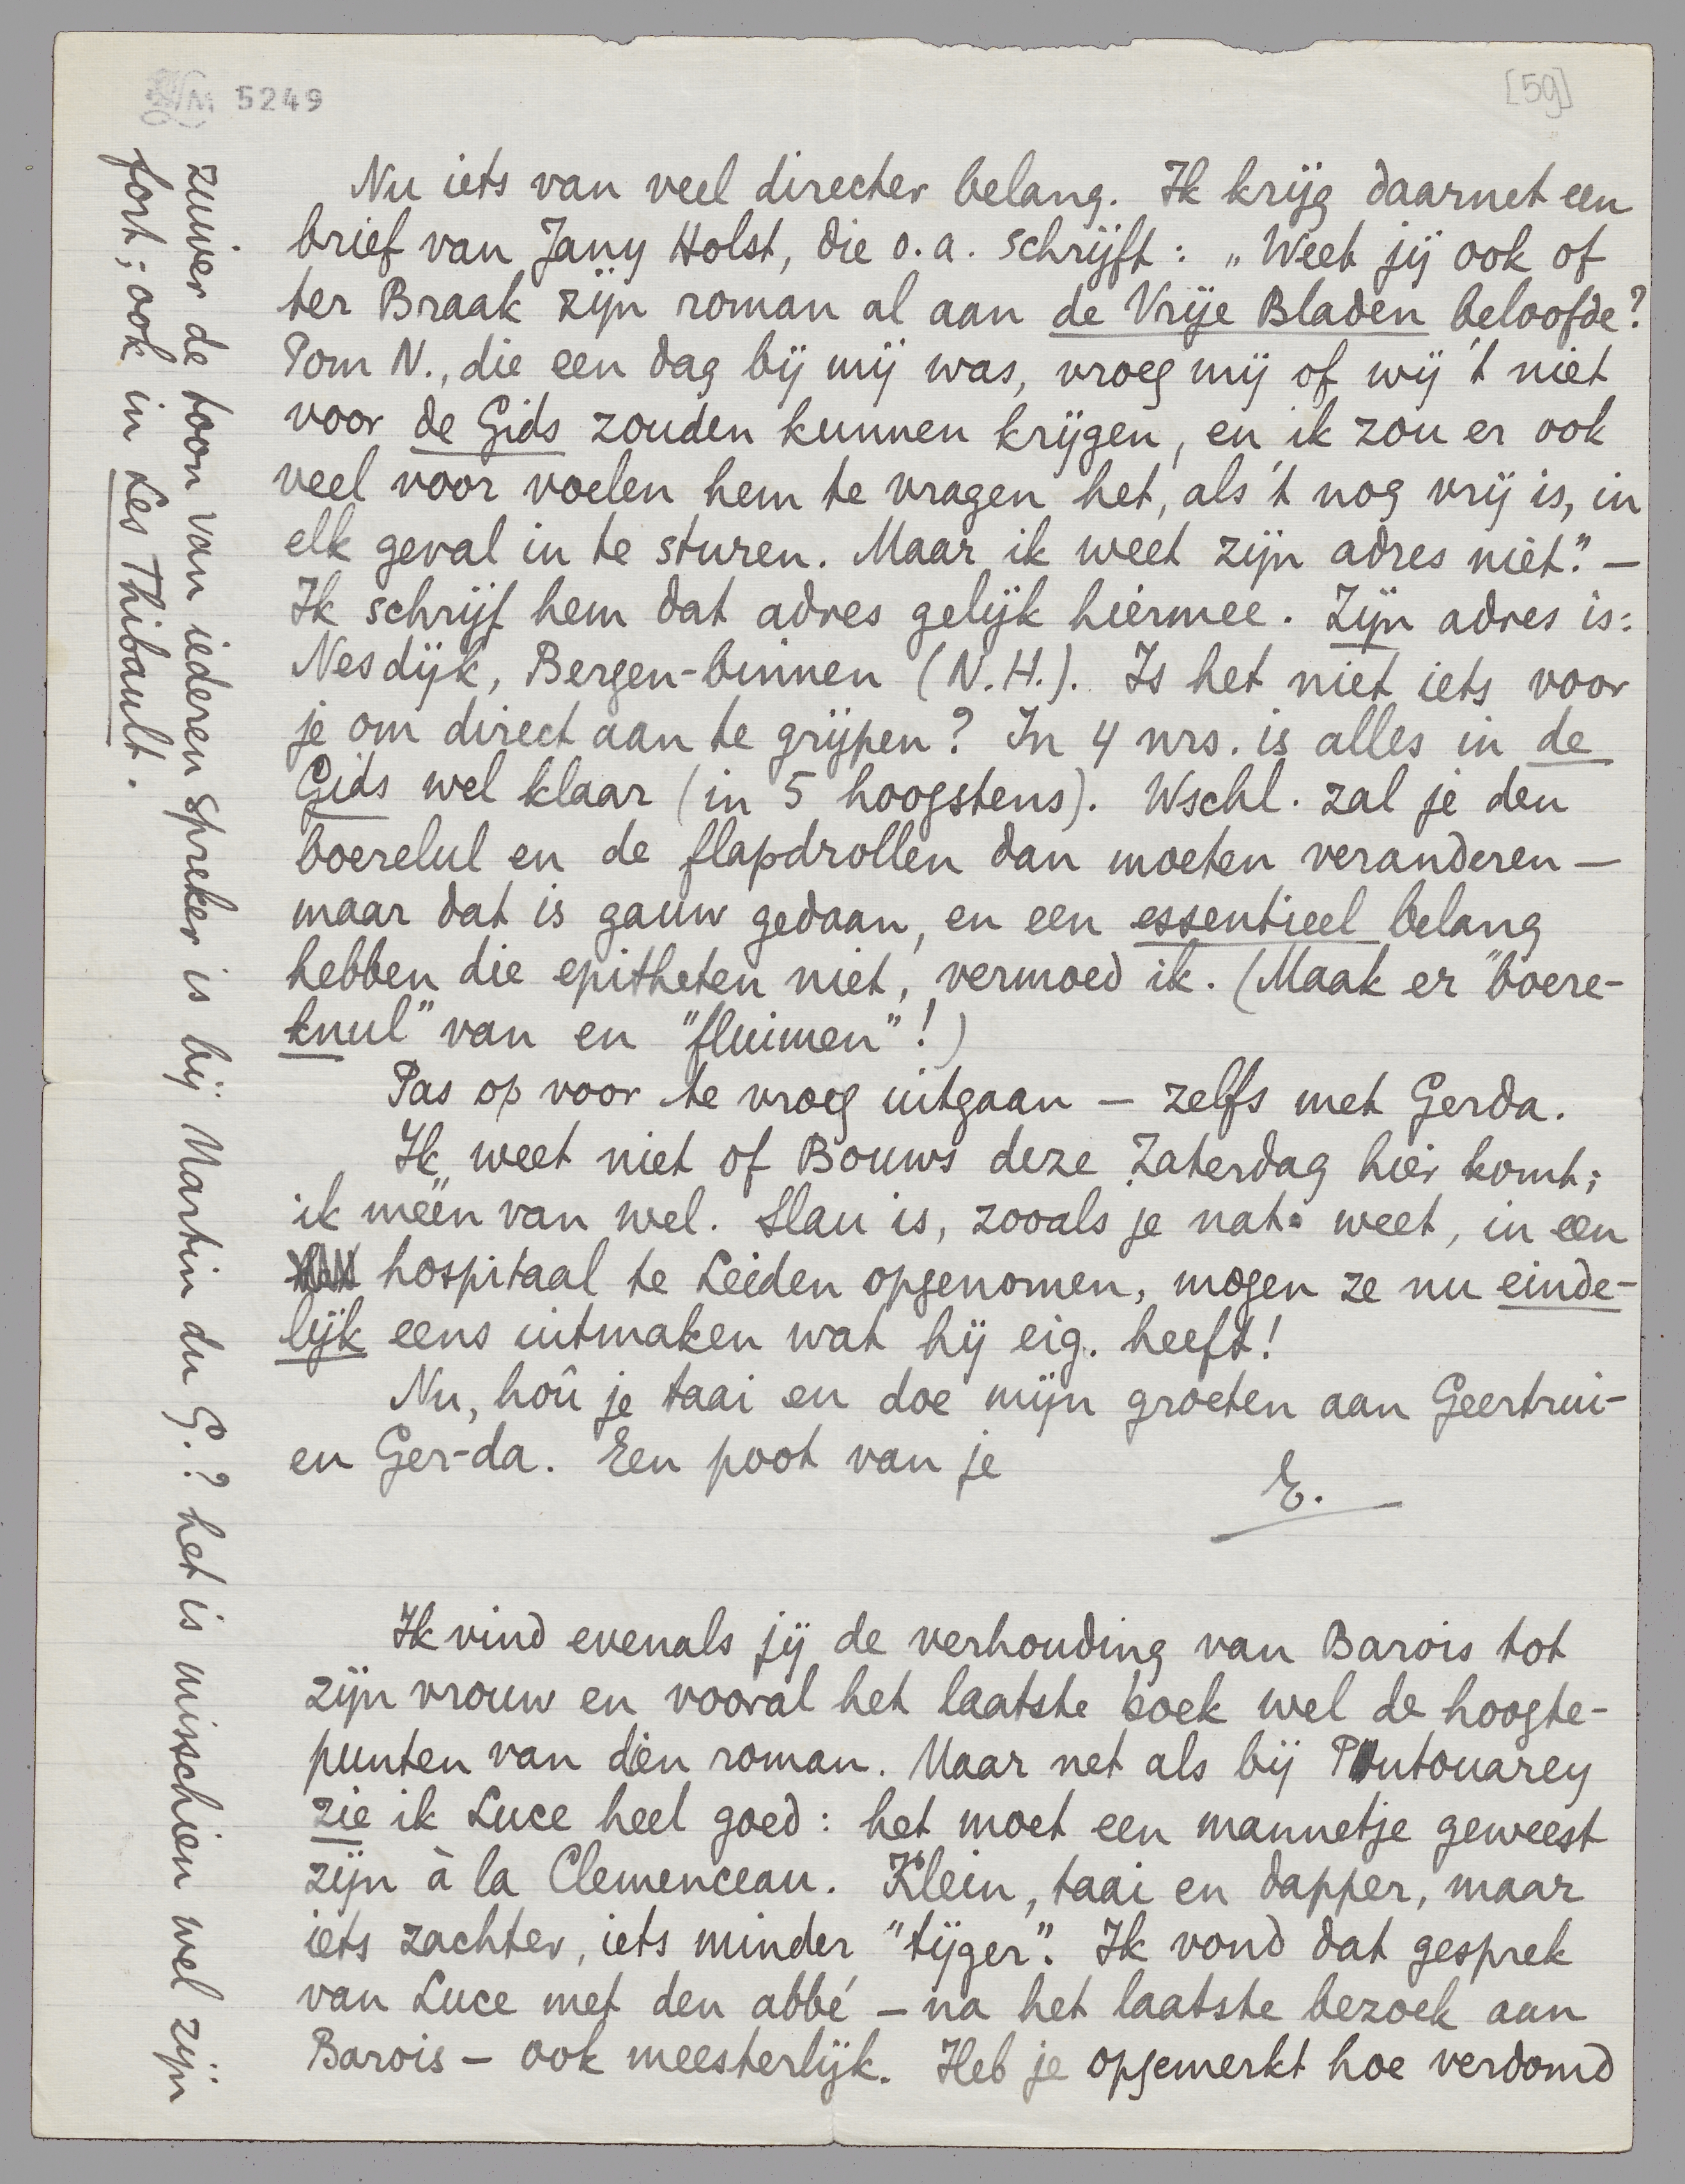 5249
[59]
Nu iets van veel directer belang. Ik krijg daarnet een
brief van Jany Holst, die o.a. schrijft: „Weet jij ook of
ter Braak zijn roman al aan de Vrije Bladen beloofde?
Tom N., die een dag bij mij was, vroeg mij of wij 't niet
voor de Gids zouden kunnen krijgen, en ik zou er ook
veel voor voelen hem te vragen het, als 't nog vrij is, in
elk geval in te sturen. Maar ik weet zijn adres niet." —
Ik schrijf hem dat adres gelijk hiermee. Zijn adres is:
Nesdijk, Bergen-binnen (N.H.). Is het niet iets voor
je om direct aan te grijpen? In 4 nrs. is alles in de
Gids wel klaar (in 5 hoogstens). Wschl. zal je den
boerelul en de flapdrollen dan moeten veranderen —
maar dat is gauw gedaan, en een essentieel belang
hebben die epitheten niet, vermoed ik. (Maak er "boere-
knul" van en "fluimen"!)
Pas op voor te vroeg uitgaan — zelfs met Gerda.
Ik weet niet of Bouws deze Zaterdag hier komt;
ik meen van wel. Slau is, zooals je nat. weet, in een
hospitaal te Leiden opgenomen, mogen ze nu einde-
lijk eens uitmaken wat hij eig. heeft!
Nu, hoû je taai en doe mijn groeten aan Geertrui-
en Ger-da. Een poot van je
E.
Ik vind evenals jij de verhouding van Barois tot
zijn vrouw en vooral het laatste boek wel de hoogte-
punten van dien roman. Maar net als bij Poutouarey
zie ik Luce heel goed: het moet een mannetje geweest
zijn à la Clemenceau. Klein, taai en dapper, maar
iets zachter, iets minder "tijger". Ik vond dat gesprek
van Luce met den abbé — na het laatste bezoek aan
Barois — ook meesterlijk. Heb je opgemerkt hoe verdomd
zuiver de toon van iederen spreker is bij Martin du G.? het is misschien wel zijn
fort; ook in Les Thibault.